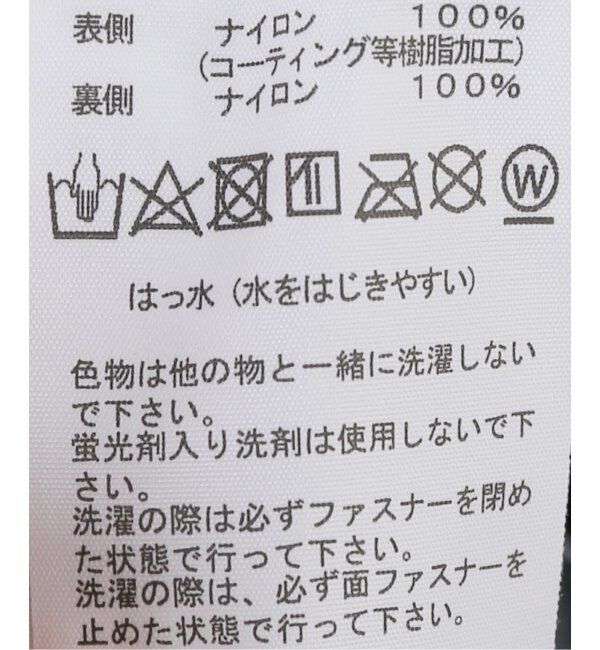 表側 ナイロン 100%
(コーティング等樹脂加工)
裏側 ナイロン 100%
W
はっ水（水をはじきやすい）
色物は他の物と一緒に洗濯しない
で下さい。
蛍光剤入り洗剤は使用しないで下
さい。
洗濯の際は必ずファスナーを閉め
た状態で行って下さい。
洗濯の際は、必ず面ファスナーを
止めた状態で行って下さい。